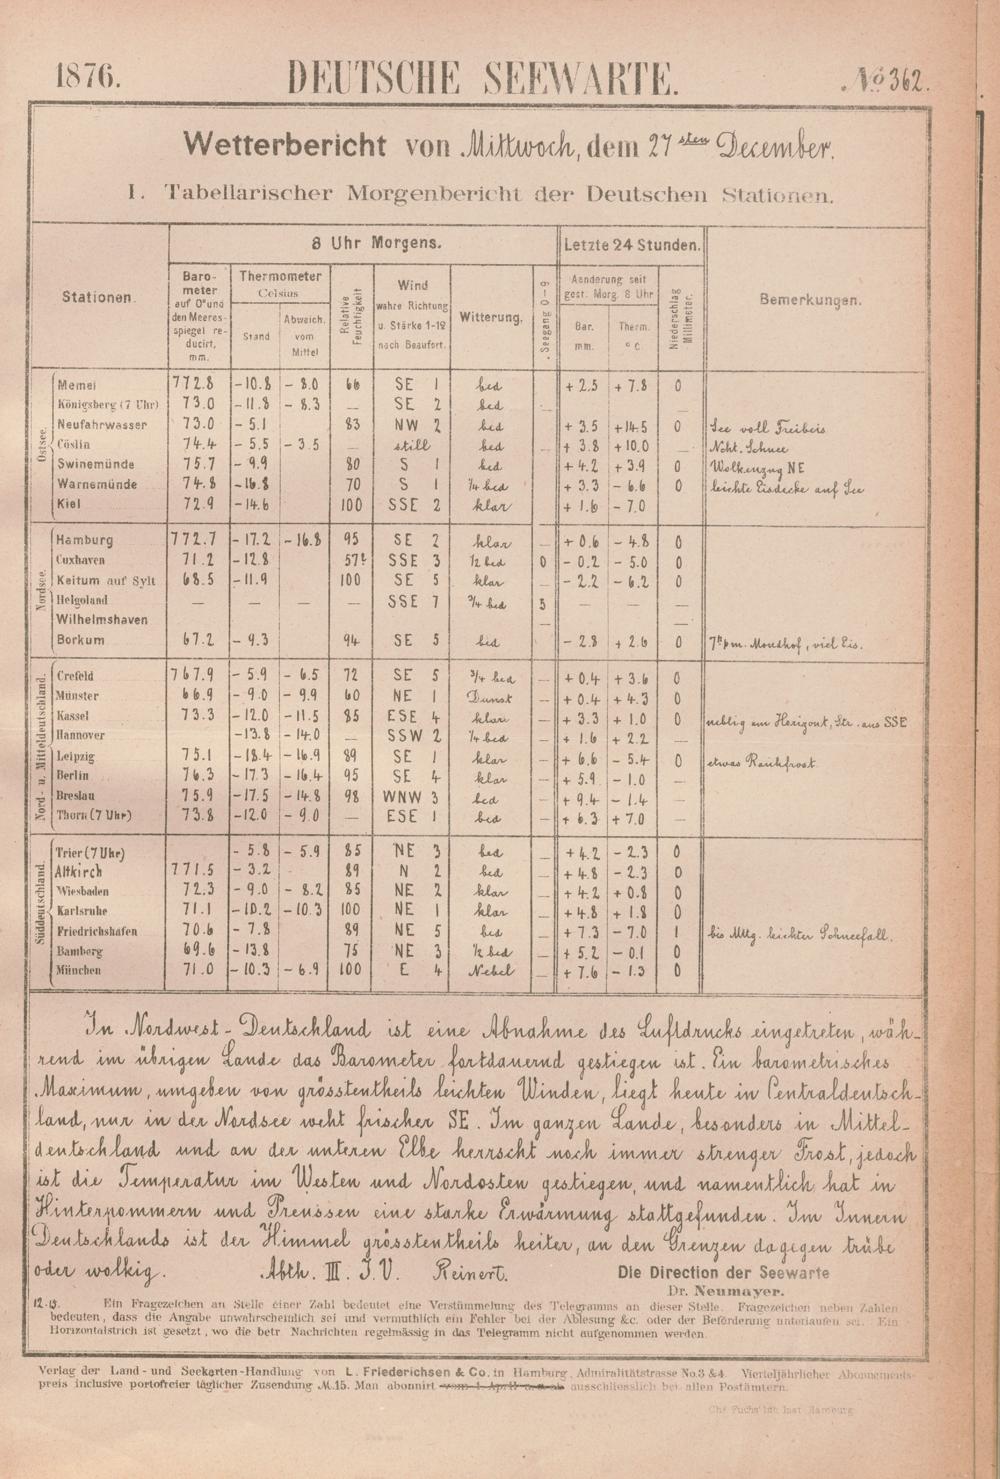 1876. DEUTSCHE SEEWARTE. No 362.
Wetterbericht von Mittwoch, dem 27sten December.
I. Tabellarischer Morgenbericht der Deutschen Stationen.
Stationen. 8 Uhr Morgens. Letzte 24 Stunden. Bemerkungen.
Barometer auf 0° und den Meeresspiegel reducirt, mm. Thermometer Celsius Stand Abweich. vom Mittel Relative Feuchtigkeit Wind wahre Richtung u. Stärke 1-12 nach Beaufort. Witterung. Seegang 0-9 Aenderung seit gest. Morg. 8 Uhr Bar. mm. Therm. °C. Niederschlag Millimeter.
Ostsee.
Memel 772.8 -10.8 -8.0 66 SE 1 bed +2.5 +7.8 0
Königsberg (7 Uhr) 73.0 -11.8 -8.3 — SE 2 bed —
Neufahrwasser 73.0 -5.1 83 NW 2 bed +3.5 +14.5 0 See voll Freibeis
Cöslin 74.4 -5.5 -3.5 — still bed +3.8 +10.0 — Ncht. Schnee
Swinemünde 75.7 -9.9 80 S 1 bed +4.2 +3.9 0 Wolkenzug NE
Warnemünde 74.8 -16.8 70 S 1 1/4 bed +3.3 -6.6 0 leichte Eisdecke auf See
Kiel 72.9 -14.6 100 SSE 2 klar +1.6 -7.0
Nordsee.
Hamburg 772.7 -17.2 -16.8 95 SE 2 klar — +0.6 -4.8 0
Cuxhaven 71.2 -12.8 57? SSE 3 1/2 bed 0 -0.2 -5.0 0
Keitum auf Sylt 68.5 -11.9 100 SE 5 klar — -2.2 -6.2 0
Helgoland — — — — SSE 7 3/4 bed 5 — — —
Wilhelmshaven
Borkum 67.2 -9.3 94 SE 5 bed -2.8 +2.6 0 7h pm. Mondhof, viel Eis.
Nord- u. Mitteldeutschland.
Crefeld 767.9 -5.9 -6.5 72 SE 5 3/4 bed — +0.4 +3.6 0
Münster 66.9 -9.0 -9.9 60 NE 1 Dunst — +0.4 +4.3 0
Kassel 73.3 -12.0 -11.5 85 ESE 4 klar — +3.3 +1.0 0 neblig am Horizont, Str. aus SSE
Hannover -13.8 -14.0 — SSW 2 1/4 bed — +1.6 +2.2 —
Leipzig 75.1 -18.4 -16.9 89 SE 1 klar — +6.6 -5.4 0 etwas Rauhfrost
Berlin 76.3 -17.3 -16.4 95 SE 4 klar — +5.9 -1.0 —
Breslau 75.9 -17.5 -14.8 98 WNW 3 bed — +9.4 -1.4
Thorn (7 Uhr) 73.8 -12.0 -9.0 — ESE 1 bed — +6.3 +7.0 —
Süddeutschland.
Trier (7 Uhr) -5.8 -5.9 85 NE 3 bed — +4.2 -2.3 0
Altkirch 771.5 -3.2 89 N 2 bed — +4.8 -2.3 0
Wiesbaden 72.3 -9.0 -8.2 85 NE 2 klar — +4.2 +0.8 0
Karlsruhe 71.1 -10.2 -10.3 100 NE 1 klar — +4.8 +1.8 0
Friedrichshafen 70.6 -7.8 89 NE 5 bed — +7.3 -7.0 1 bis Mttg. leichter Schneefall.
Bamberg 69.6 -13.8 75 NE 3 1/2 bed — +5.2 -0.1 0
München 71.0 -10.3 -6.9 100 E 4 Nebel — +7.6 -1.3 0
In Nordwest-Deutschland ist eine Abnahme des Luftdrucks eingetreten, wäh-
rend im übrigen Lande das Barometer fortdauernd gestiegen ist. Ein barometrisches
Maximum, umgeben von grösstentheils leichten Winden, liegt heute in Centraldeutsch-
land, nur in der Nordsee weht frischer SE. Im ganzen Lande, besonders in Mittel-
deutschland und an der unteren Elbe herrscht noch immer strenger Frost, jedoch
ist die Temperatur im Westen und Nordosten gestiegen, und namentlich hat in
Hinterpommern und Preussen eine starke Erwärmung stattgefunden. Im Innern
Deutschlands ist der Himmel grösstentheils heiter, an den Grenzen dagegen trübe
oder wolkig. Abth. III. I.V. Reinert. Die Direction der Seewarte
Dr. Neumayer.
Ein Fragezeichen an Stelle einer Zahl bedeutet eine Verstümmelung des Telegramms an dieser Stelle. Fragezeichen neben Zahlen
bedeuten, dass die Angabe unwahrscheinlich sei und vermuthlich ein Fehler bei der Ablesung &c. oder der Beförderung unterlaufen sei. Ein
Horizontalstrich ist gesetzt, wo die betr. Nachrichten regelmässig in das Telegramm nicht aufgenommen werden.
Verlag der Land- und Seekarten-Handlung von L. Friederichsen & Co. in Hamburg, Admiralitätstrasse No.3 & 4. Vierteljährlicher Abonnements-
preis inclusive portofreier täglicher Zusendung M.15. Man abonnirt ausschliesslich bei allen Postämtern.
Chs Fuchs lith. Inst. Hamburg